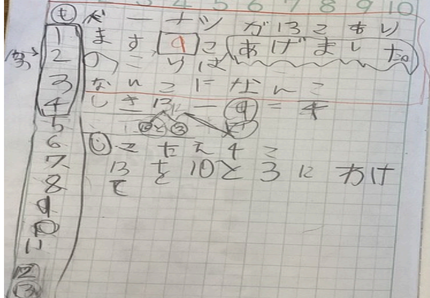 3 4 5 6 7 8 9 10
も ドーナツ が13こあり
ます。9こ あげました。
のこりは
なんこになんこ
しき 13-9=4
10と3
こたえ4こ
13を10と3にわけ
て
1
2
3
4
5
6
7
8
9
10
11
12
13